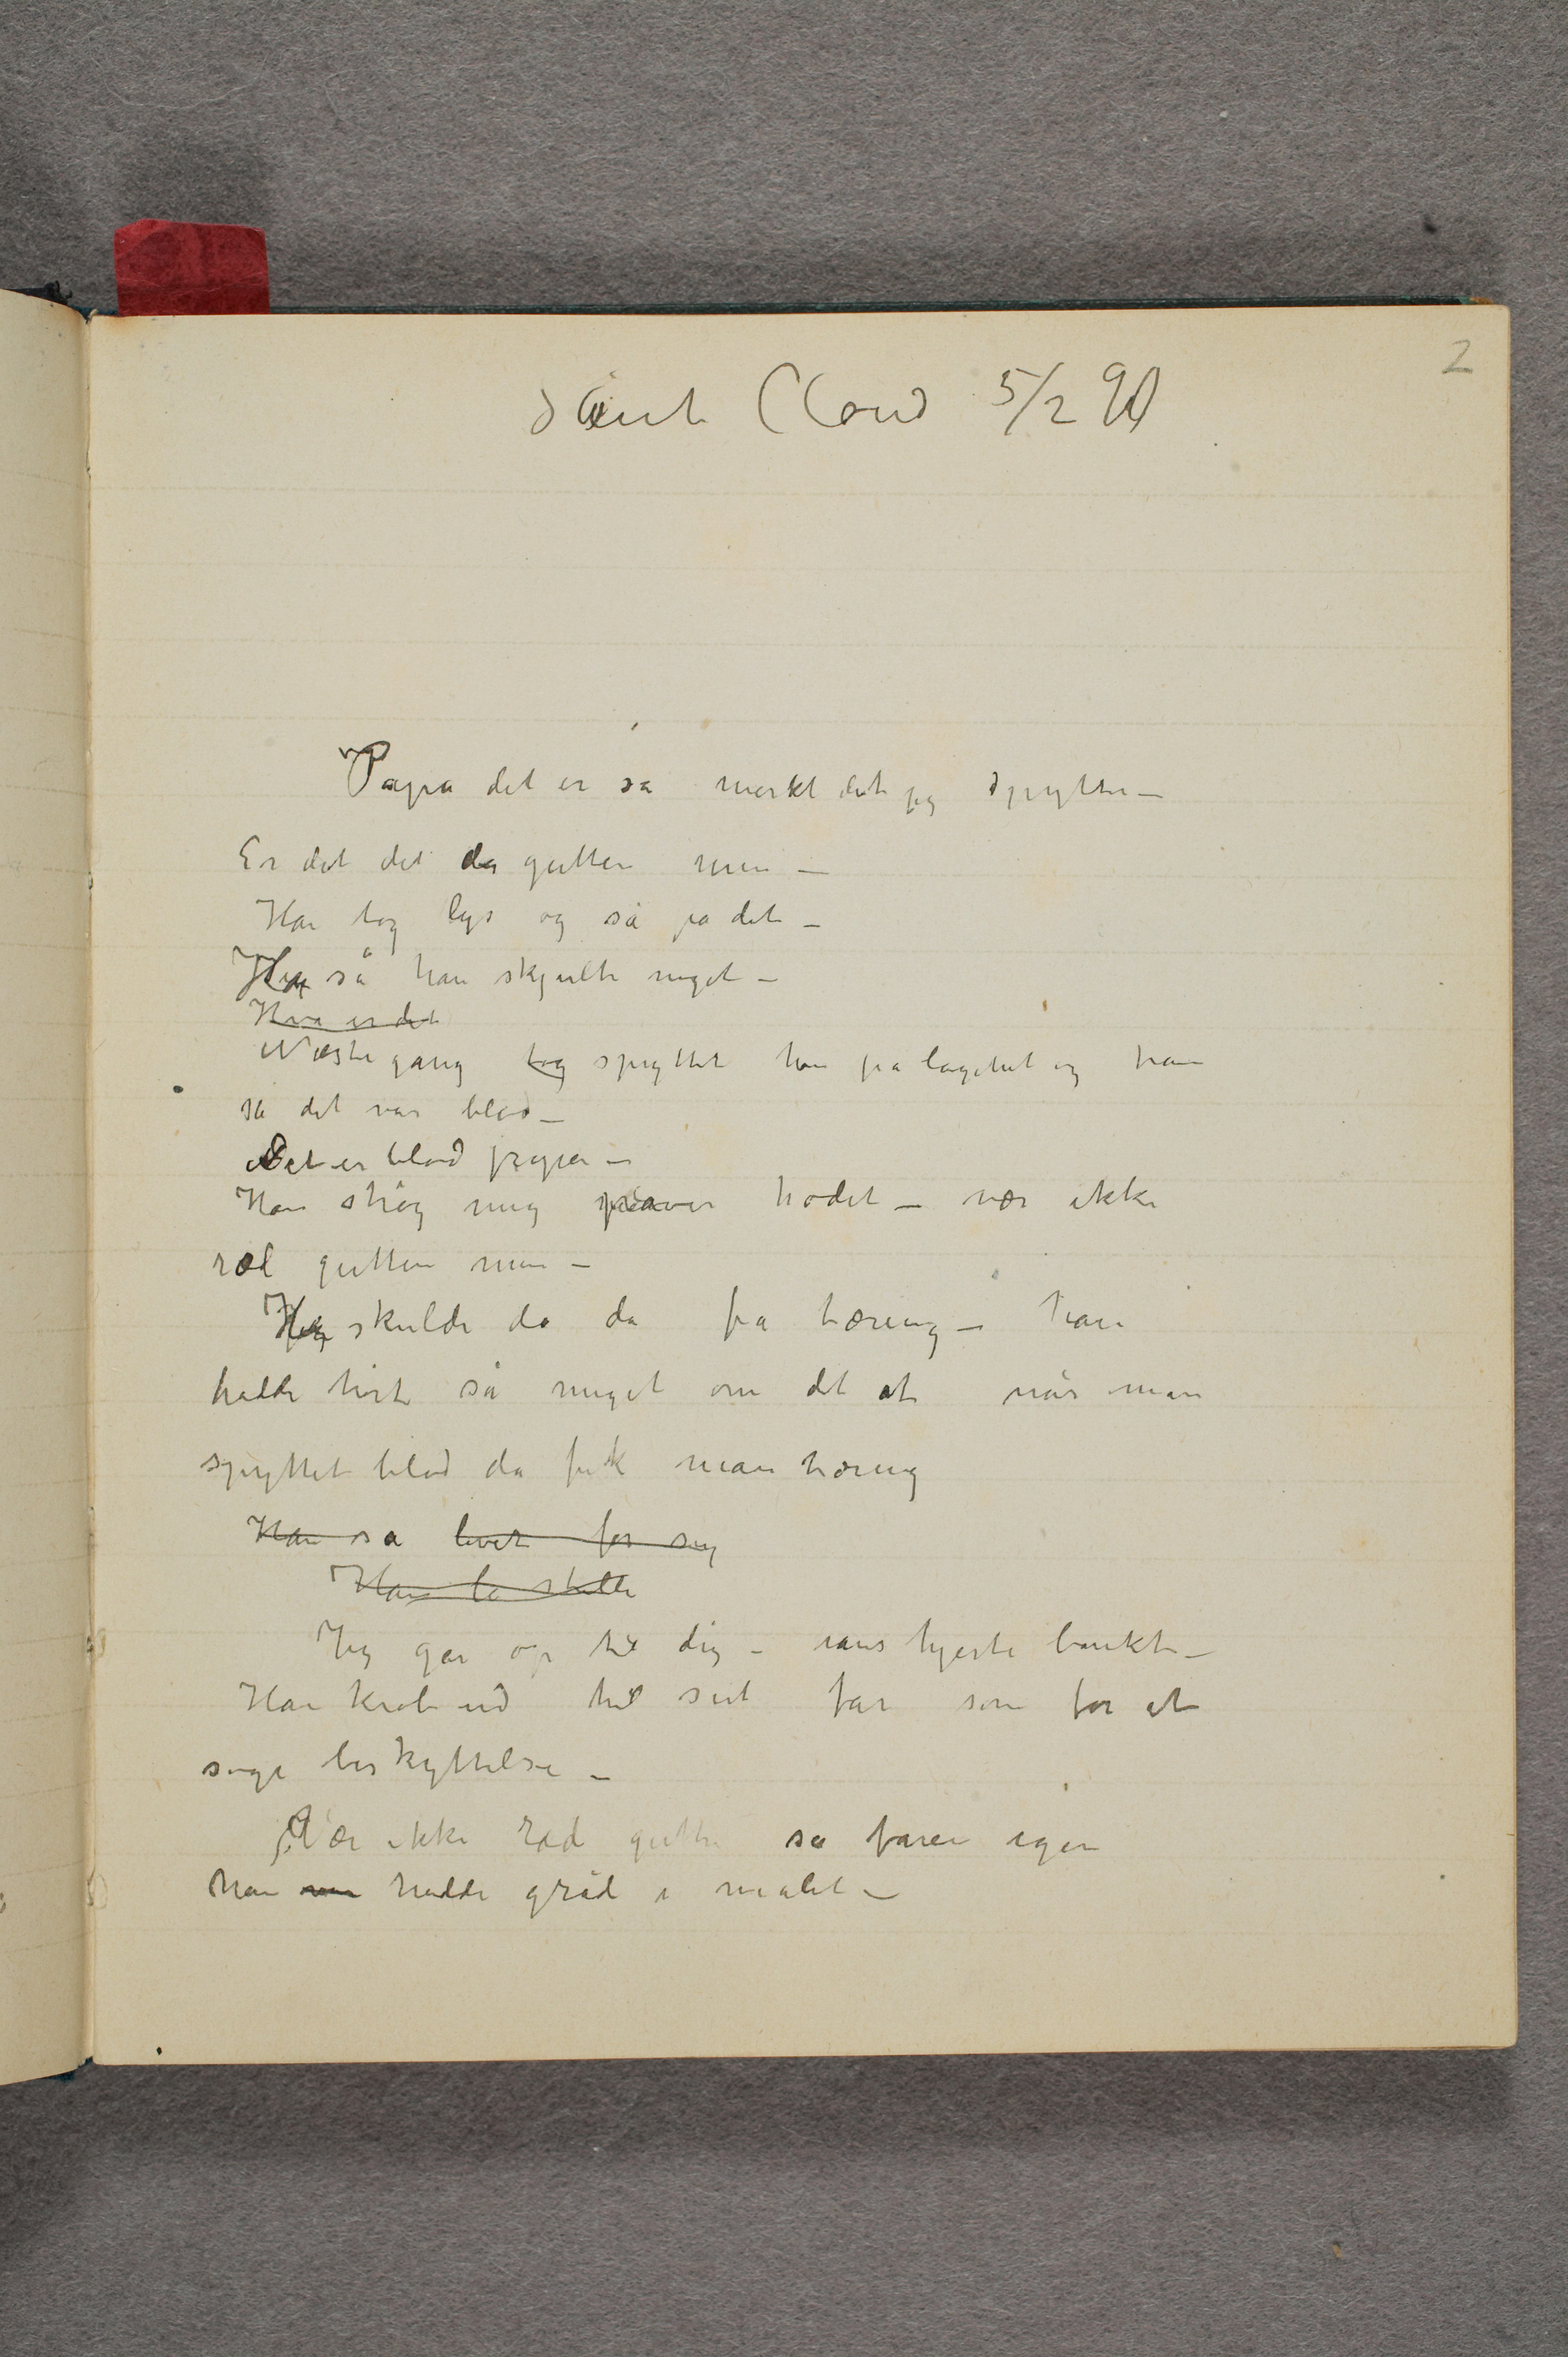 2
Saint Cloud 5/2 90
Papa det er så mørkt det jeg spytter –
Er det det da gutten min –
Han tog lys og så på det –
Jeg så han skjulte noget –
Hva er det
Næste gang tog spyttet han på lagenet og han
så det var blod –
Det er blod papa –
Han strøg mig over hodet – vær ikke
ræd gutten min –
Jeg skulde da da få tæring – han
hadde hørt så meget om det at når man
spyttet blod da fik man tæring
Han så livet for sig
Han lå stille
Jeg går op til dig – hans hjerte bankte –
Han krøb ind til sin far som for at
søge beskyttelse –
Vær ikke ræd gutten sa faren igjen
han var hadde gråd i målet –